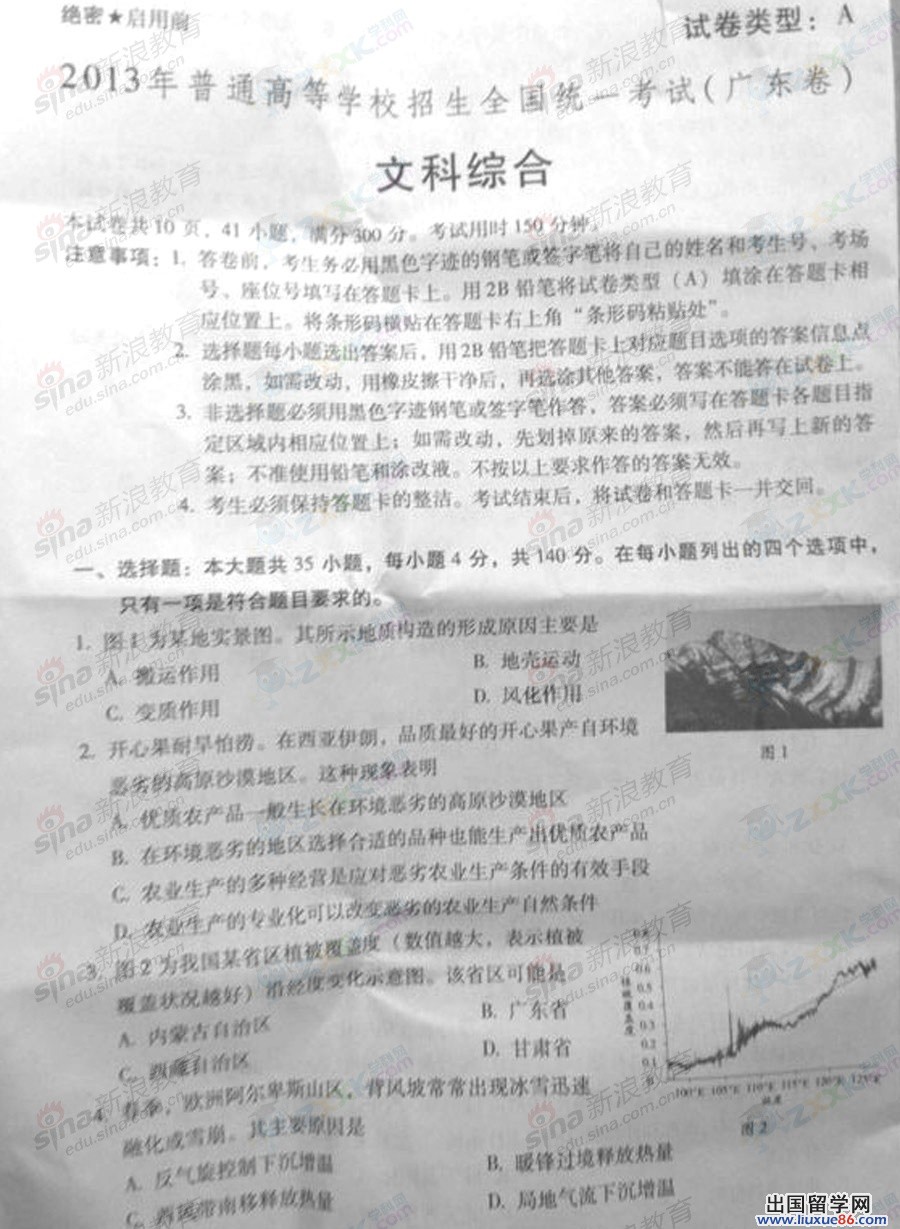 绝密★启用前
试卷类型：A
2013年普通高等学校招生全国统一考试(广东卷)
文科综合
本试卷共10页，41小题，满分300分。考试用时150分钟。
注意事项：1. 答卷前，考生务必用黑色字迹的钢笔或签字笔将自己的姓名和考生号、考场
号、座位号填写在答题卡上。用2B铅笔将试卷类型（A）填涂在答题卡相
应位置上。将条形码横贴在答题卡右上角“条形码粘贴处”。
2. 选择题每小题选出答案后，用2B铅笔把答题卡上对应题目选项的答案信息点
涂黑，如需改动，用橡皮擦干净后，再选涂其他答案，答案不能答在试卷上。
3. 非选择题必须用黑色字迹钢笔或签字笔作答，答案必须写在答题卡各题目指
定区域内相应位置上；如需改动，先划掉原来的答案，然后再写上新的答
案；不准使用铅笔和涂改液。不按以上要求作答的答案无效。
4. 考生必须保持答题卡的整洁。考试结束后，将试卷和答题卡一并交回。
一、选择题：本大题共35小题，每小题4分，共140分。在每小题列出的四个选项中，
只有一项是符合题目要求的。
1. 图1为某地实景图。其所示地质构造的形成原因主要是
A. 搬运作用
B. 地壳运动
C. 变质作用
D. 风化作用
图1
2. 开心果耐旱怕涝。在西亚伊朗，品质最好的开心果产自环境
恶劣的高原沙漠地区。这种现象表明
A. 优质农产品一般生长在环境恶劣的高原沙漠地区
B. 在环境恶劣的地区选择合适的品种也能生产出优质农产品
C. 农业生产的多种经营是应对恶劣农业生产条件的有效手段
D. 农业生产的专业化可以改变恶劣的农业生产自然条件
3. 图2为我国某省区植被覆盖度（数值越大，表示植被
覆盖状况越好）沿经度变化示意图。该省区可能是
A. 内蒙古自治区
B. 广东省
C. 西藏自治区
D. 甘肃省
植被覆盖度
0.8
0.7
0.6
0.5
0.4
0.3
0.2
0.1
0
100°E 105°E 110°E 115°E 120°E 125°E
经度
图2
4. 春季，欧洲阿尔卑斯山区，背风坡常常出现冰雪迅速
融化或雪崩。其主要原因是
A. 反气旋控制下沉增温
B. 暖锋过境释放热量
C. 西风带南移释放热量
D. 局地气流下沉增温
sina新浪教育
edu.sina.com.cn
出国留学网
www.liuxue86.com